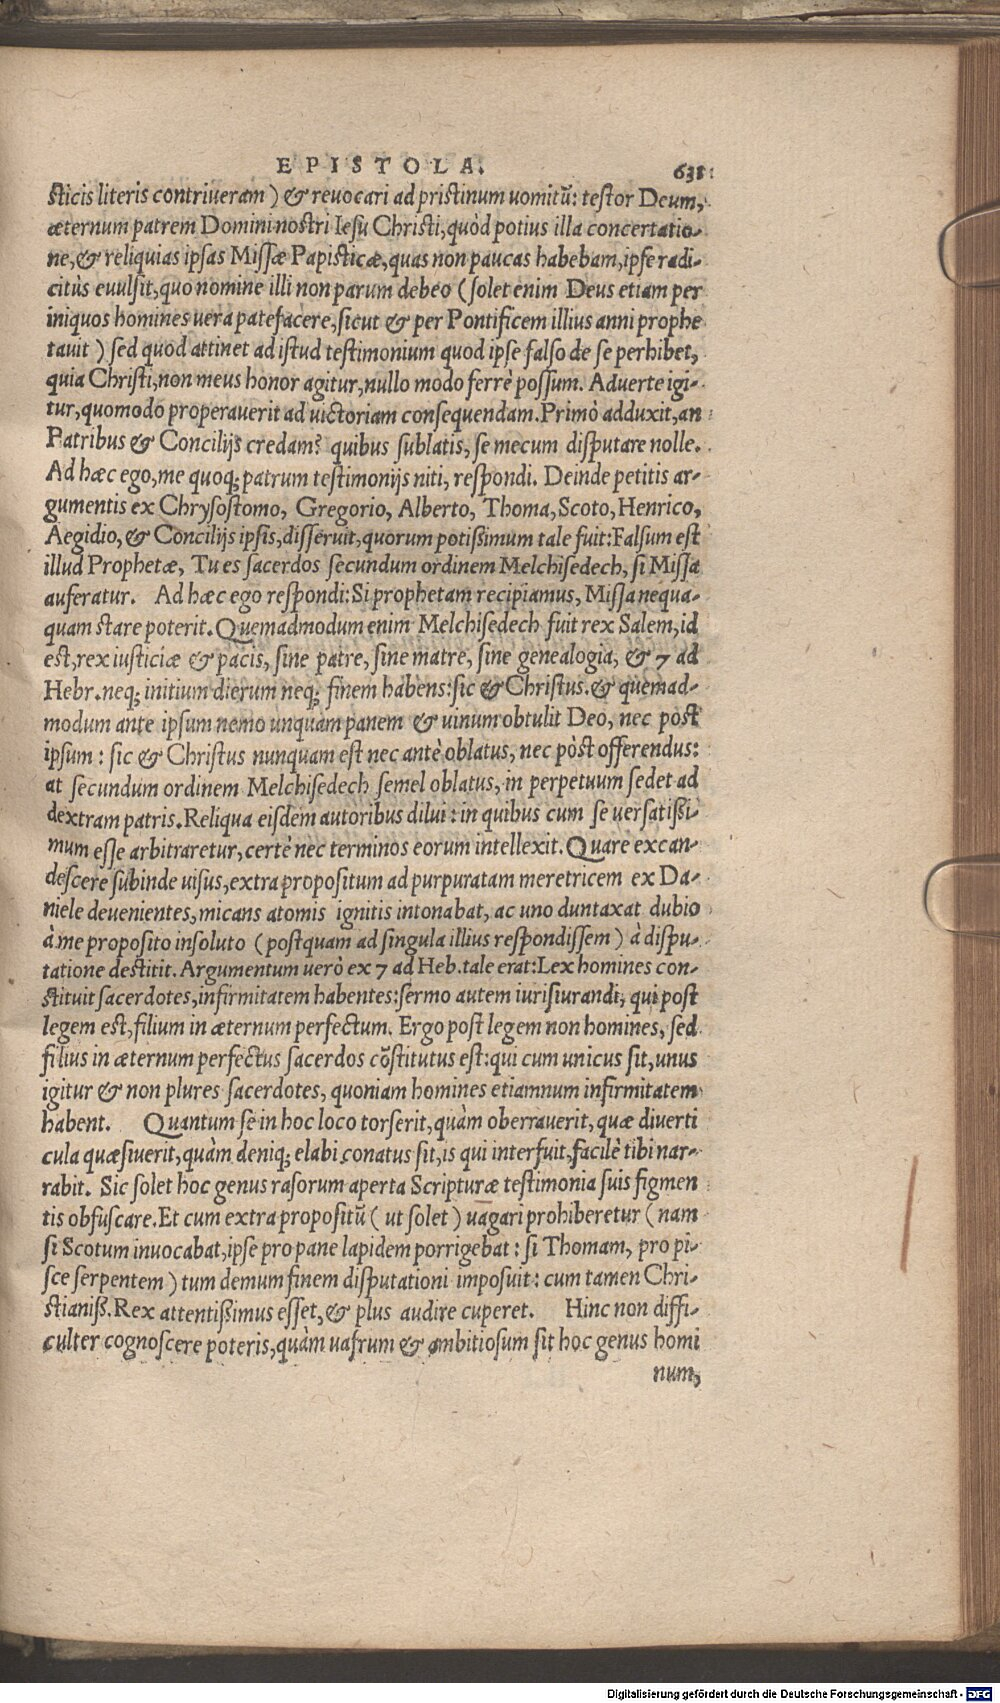 EPISTOLA. 631
sticis literis contriveram) & revocari ad pristinum vomitū: testor Deum,
æternum patrem Domini nostri Iesu Christi, quòd potius illa concertatio-
ne, & reliquias ipsas Missæ Papisticæ, quas non paucas habebam, ipse radi-
citùs evulsit, quo nomine illi non parum debeo (solet enim Deus etiam per
iniquos homines vera patefacere, sicut & per Pontificem illius anni prophe
tavit) sed quod attinet ad istud testimonium quod ipse falso de se perhibet,
quia Christi, non meus honor agitur, nullo modo ferrè possum. Adverte igi-
tur, quomodo properaverit ad victoriam consequendam. Primò adduxit, an
Patribus & Concilijs credam? quibus sublatis, se mecum disputare nolle.
Ad hæc ego, me quoq; patrum testimonijs niti, respondi. Deinde petitis ar-
gumentis ex Chrysostomo, Gregorio, Alberto, Thoma, Scoto, Henrico,
Aegidio, & Concilijs ipsis, disseruit, quorum potißimum tale fuit: Falsum est
illud Prophetæ, Tu es sacerdos secundum ordinem Melchisedech, si Missa
auferatur. Ad hæc ego respondi: Si prophetam recipiamus, Missa nequa-
quam stare poterit. Quemadmodum enim Melchisedech fuit rex Salem, id
est, rex iusticiæ & pacis, sine patre, sine matre, sine genealogia, & 7 ad
Hebr. neq; initium dierum neq; finem habens: sic & Christus. & quemad-
modum ante ipsum nemo unquàm panem & vinum obtulit Deo, nec post
ipsum: sic & Christus nunquam est nec antè oblatus, nec pòst offerendus:
at secundum ordinem Melchisedech semel oblatus, in perpetuum sedet ad
dextram patris. Reliqua eisdem autoribus dilui: in quibus cum se versatißi-
mum esse arbitraretur, certè nec terminos eorum intellexit. Quare excan-
descere subinde visus, extra propositum ad purpuratam meretricem ex Da-
niele devenientes, micans atomis ignitis intonabat, ac uno duntaxat dubio
à me proposito insoluto (postquam ad singula illius respondissem) à dispu-
tatione destitit. Argumentum verò ex 7 ad Heb. tale erat: Lex homines con-
stituit sacerdotes, infirmitatem habentes: sermo autem iurisiurandi, qui post
legem est, filium in æternum perfectum. Ergo post legem non homines, sed
filius in æternum perfectus sacerdos cōstitutus est: qui cum unicus sit, unus
igitur & non plures sacerdotes, quoniam homines etiamnum infirmitatem
habent. Quantum se in hoc loco torserit, quàm oberraverit, quæ diverti
cula quæsiverit, quàm deniq; elabi conatus sit, is qui interfuit, facilè tibi nar-
rabit. Sic solet hoc genus rasorum aperta Scripturæ testimonia suis figmen
tis obfuscare. Et cum extra propositū (ut solet) vagari prohiberetur (nam
si Scotum invocabat, ipse pro pane lapidem porrigebat: si Thomam, pro pi-
sce serpentem) tum demum finem disputationi imposuit: cum tamen Chri-
stianiß. Rex attentißimus esset, & plus audire cuperet. Hinc non diffi-
culter cognoscere poteris, quàm vafrum & ambitiosum sit hoc genus homi
num,
Digitalisierung gefördert durch die Deutsche Forschungsgemeinschaft - DFG